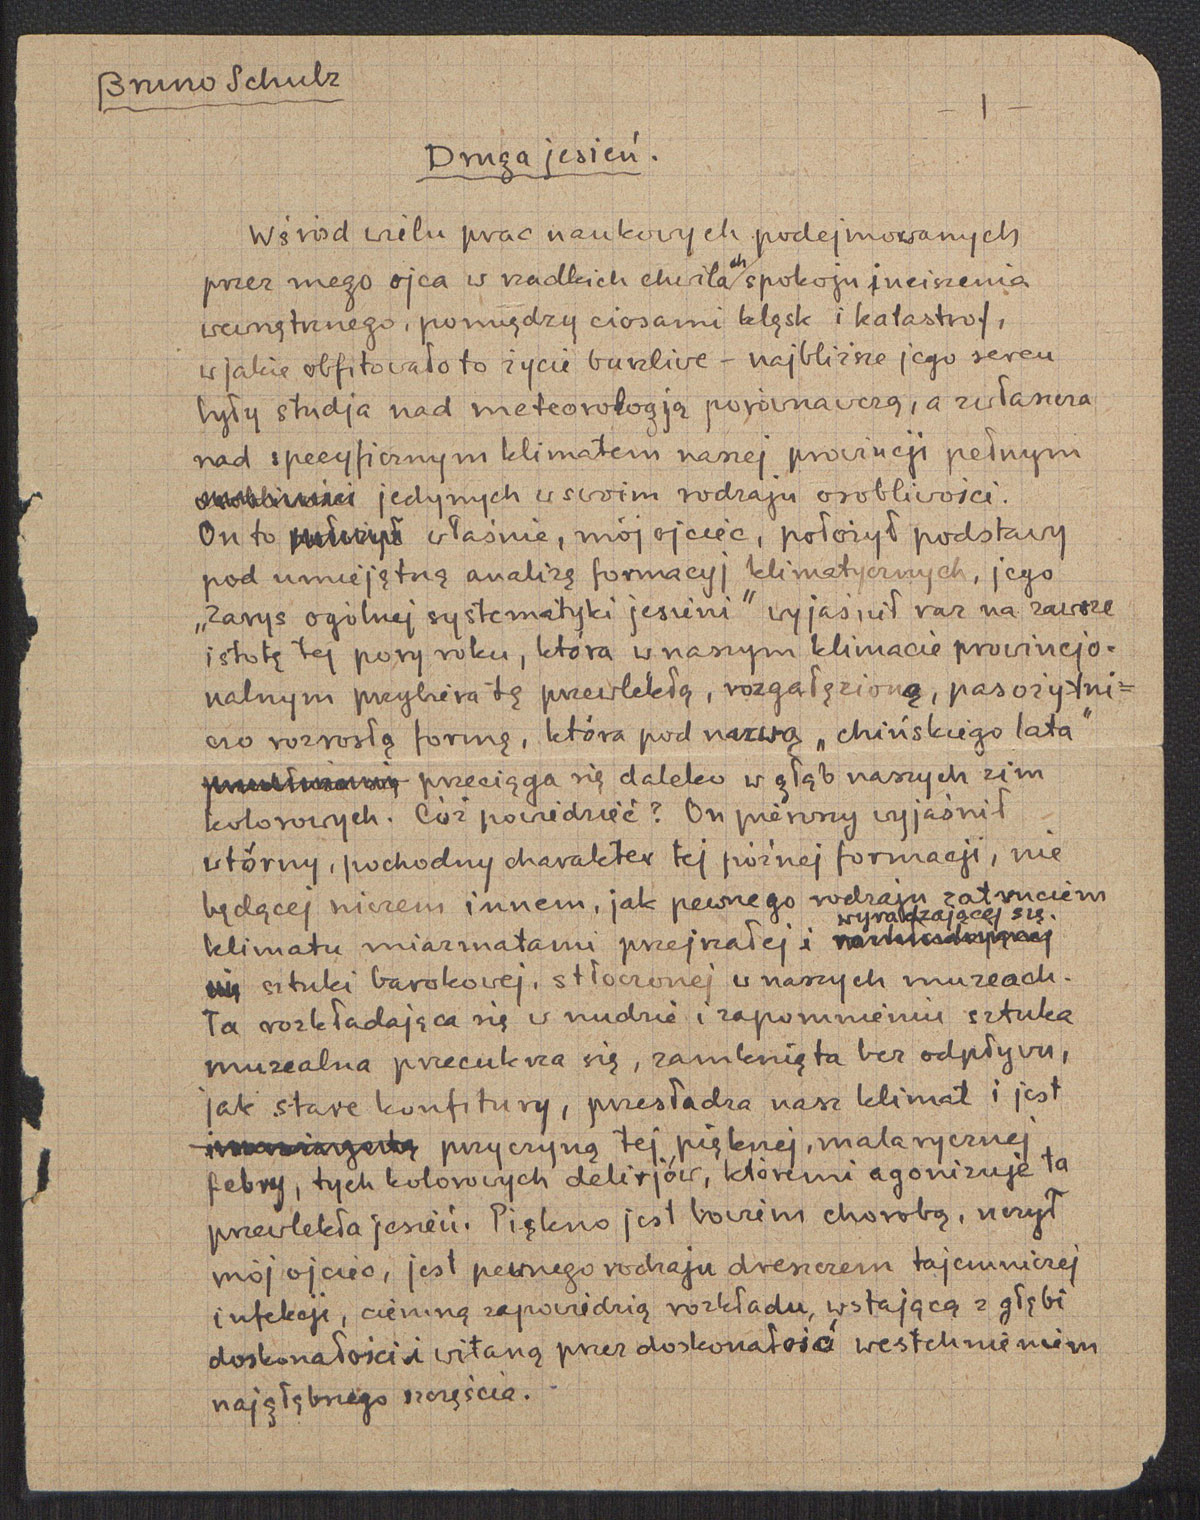 Bruno Schulz
– 1 –
Druga jesień.
Wśród wielu prac naukowych podejmowanych
przez mego ojca w rzadkich chwilach spokoju i uciszenia
wewnętrznego, pomiędzy ciosami klęsk i katastrof,
w jakie obfitowało to życie burzliwe – najbliższe jego sercu
były studja nad meteorologją porównawczą, a zwłaszcza
nad specyficznym klimatem naszej prowincji pełnym
jedynych w swoim rodzaju osobliwości.
On to właśnie, mój ojciec, położył podstawy
pod umiejętną analizę formacyj klimatycznych, jego
„Zarys ogólnej systematyki jesieni" wyjaśnił raz na zawsze
istotę tej pory roku, która w naszym klimacie prowincjo-
nalnym przybiera tę przewlekłą, rozgałęzioną, pasożytni=
czo rozrosłą formę, która pod nazwą „chińskiego lata"
przeciąga się daleko w głąb naszych zim
kolorowych. Cóż powiedzieć? On pierwszy wyjaśnił
wtórny, pochodny charakter tej późnej formacji, nie
będącej niczem innem, jak pewnego rodzaju zatruciem
klimatu miazmatami przejrzałej i wyradzającej się
sztuki barokowej, stłoczonej w naszych muzeach.
Ta rozkładająca się w nudzie i zapomnieniu sztuka
muzealna przecukrza się, zamknięta bez odpływu,
jak stare konfitury, przesładza nasz klimat i jest
przyczyną tej pięknej, malarycznej
febry, tych kolorowych delirjów, któremi agonizuje ta
przewlekła jesień. Piękno jest bowiem chorobą, uczył
mój ojciec, jest pewnego rodzaju dreszczem tajemniczej
infekcji, ciemną zapowiedzią rozkładu, wstającą z głębi
doskonałości i witaną przez doskonałość westchnieniem
najgłębszego szczęścia.